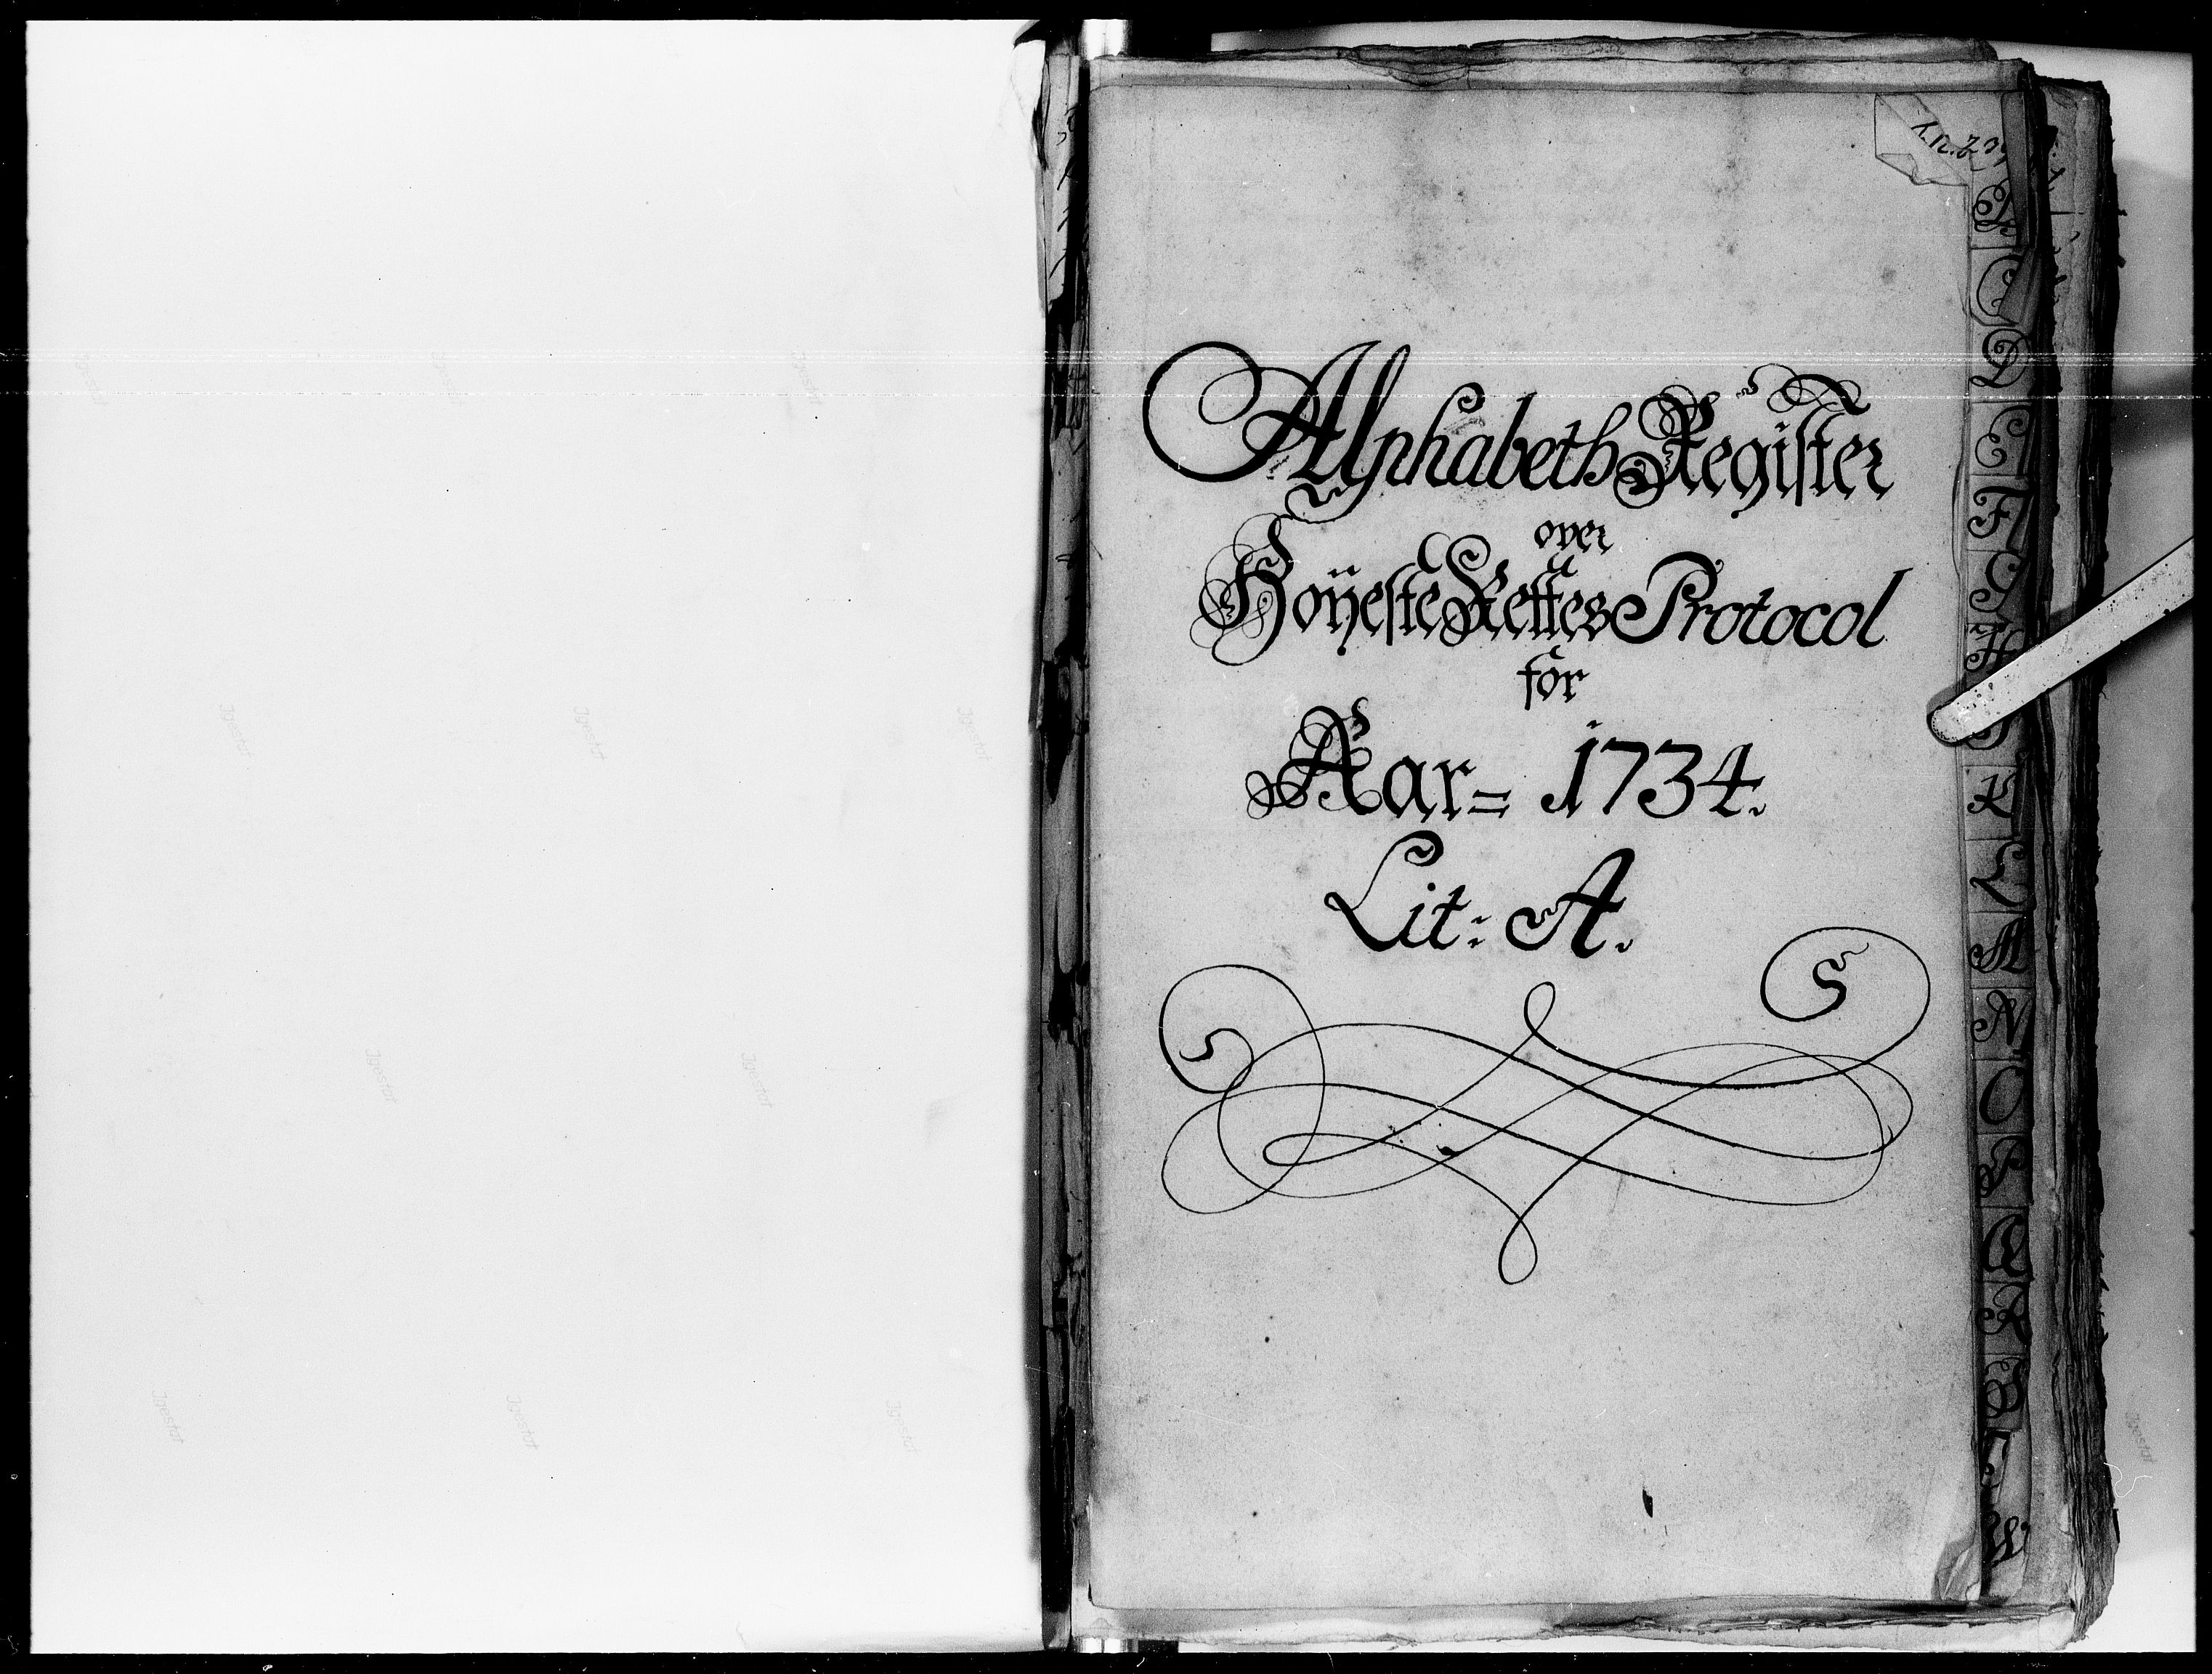 Alphabeth Register
over
Höÿeste Rettes Protocol
for
Aar= 1734.
Lit: A.
B
C
D
E
F
G
H
K
L
M
N
O
P
Q
R
S
T